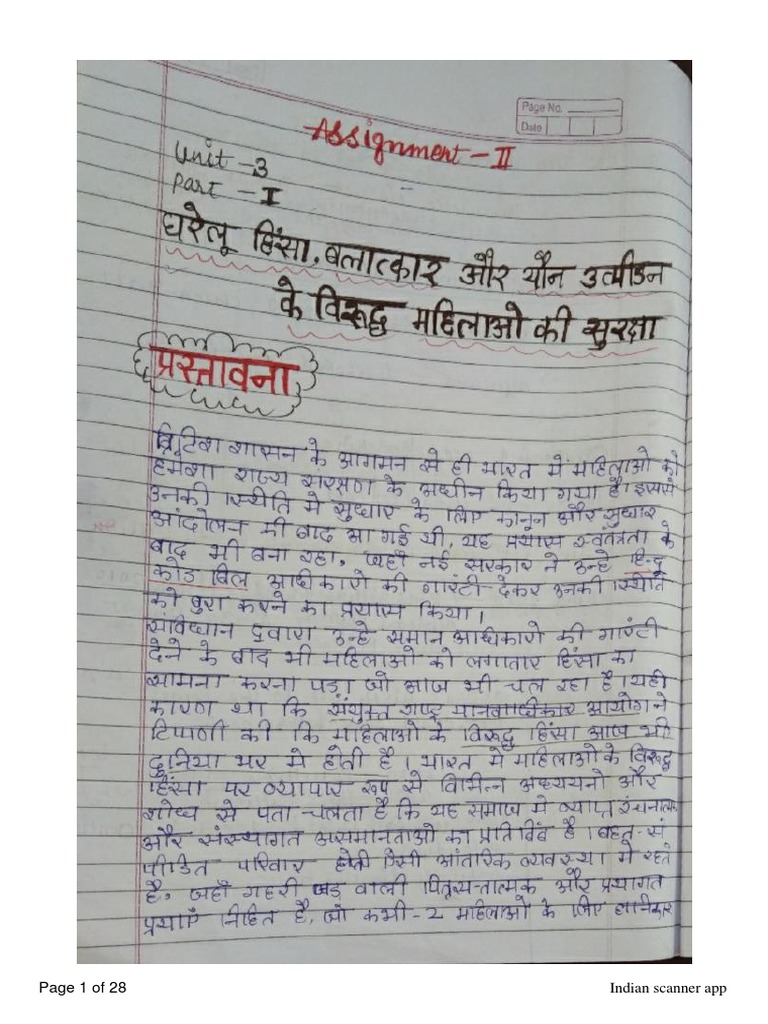 Page No.
Date
Assignment - II
Unit - 3
Part - I
घरेलू हिंसा, बलात्कार और यौन उत्पीडन
के विरूद्ध महिलाओ की सुरक्षा
प्रस्तावना
ब्रिटिश शासन के आगमन से ही भारत में महिलाओ को
हमेशा राज्य सरंक्षण के अधीन किया गया है। इससे
उनकी स्थिति मे सुधार के लिए कानून और सुधार
आंदोलन की बाढ आ गई थी, यह प्रयास स्वतंत्रता के
बाद भी बना रहा, जहाँ नई सरकार ने उन्हे हिन्दू
कोड बिल अधिकारो की गारंटी देकर उनकी स्थिति
को बुरा करने का प्रयास किया।
संविधान द्वारा उन्हे समान अधिकारो की गारंटी
देने के बाद भी महिलाओ को लगातार हिंसा का
सामना करना पड़ा जो आज भी चल रहा है। यही
कारण था कि संयुक्त राष्ट्र मानवाधिकार आयोग ने
टिप्पणी की कि महिलाओ के विरूद्ध हिंसा आज भी
दुनिया भर मे होती है। भारत मे महिलाओ के विरूद्ध
हिंसा पर व्यापार रूप से विभिन्न अध्ययनो और
शोध से पता चलता है कि यह समाज मे व्याप्त रंचनात्म
और संस्थागत असमानताओ का प्रतिबिंब है। बहुत-सं
पीडित परिवार होती ऐसी आंतरिक व्यवस्था मे रहते
है, जहाँ गहरी जड वाली पितृसन्तात्मक और प्रथागत
प्रथाएँ निहित है, जो कभी-2 महिलाओ के लिए हानिकार
Page 1 of 28
Indian scanner app